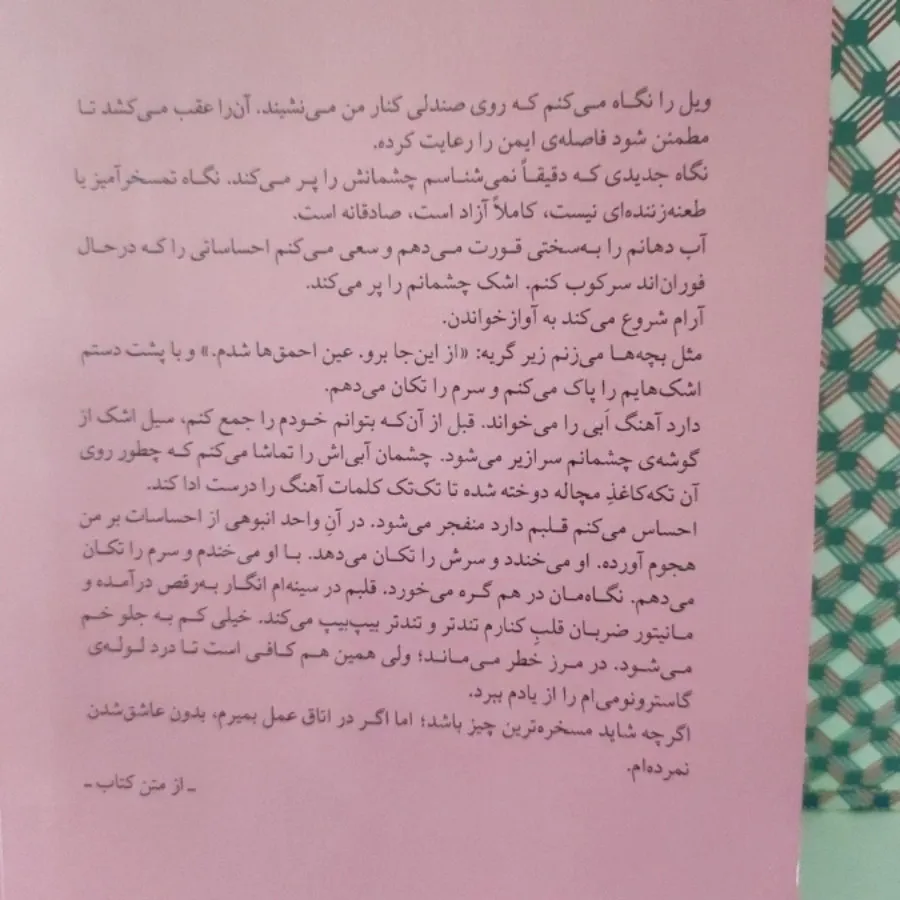 ویل را نگاه می‌کنم که روی صندلی کنار من می‌نشیند. آن‌را عقب می‌کشد تا
مطمئن شود فاصله‌ی ایمن را رعایت کرده.
نگاه جدیدی که دقیقاً نمی‌شناسم چشمانش را پر می‌کند. نگاه تمسخرآمیز یا
طعنه‌زننده‌ای نیست، کاملاً آزاد است، صادقانه است.
آب دهانم را به‌سختی قورت می‌دهم و سعی می‌کنم احساساتی را که درحال
فوران‌اند سرکوب کنم. اشک چشمانم را پر می‌کند.
آرام شروع می‌کند به آوازخواندن.
مثل بچه‌ها می‌زنم زیر گریه: «از این‌جا برو. عین احمق‌ها شدم.» و با پشت دستم
اشک‌هایم را پاک می‌کنم و سرم را تکان می‌دهم.
دارد آهنگ اَبی را می‌خواند. قبل از آن‌که بتوانم خودم را جمع کنم، سیل اشک از
گوشه‌ی چشمانم سرازیر می‌شود. چشمان آبی‌اش را تماشا می‌کنم که چطور روی
آن تکه‌کاغذِ مچاله دوخته شده تا تک‌تک کلمات آهنگ را درست ادا کند.
احساس می‌کنم قلبم دارد منفجر می‌شود. در آنِ واحد انبوهی از احساسات بر من
هجوم آورده. او می‌خندد و سرش را تکان می‌دهد. با او می‌خندم و سرم را تکان
می‌دهم. نگاه‌مان در هم گره می‌خورد. قلبم در سینه‌ام انگار به‌رقص درآمده و
مانیتور ضربان قلبِ کنارم تندتر و تندتر بیپ‌بیپ می‌کند. خیلی کم به جلو خم
می‌شود. در مرز خطر می‌ماند؛ ولی همین هم کافی است تا درد لوله‌ی
گاسترونومی‌ام را از یادم ببرد.
اگرچه شاید مسخره‌ترین چیز باشد؛ اما اگر در اتاق عمل بمیرم، بدون عاشق‌شدن
نمرده‌ام.
ـ از متن کتاب ـ